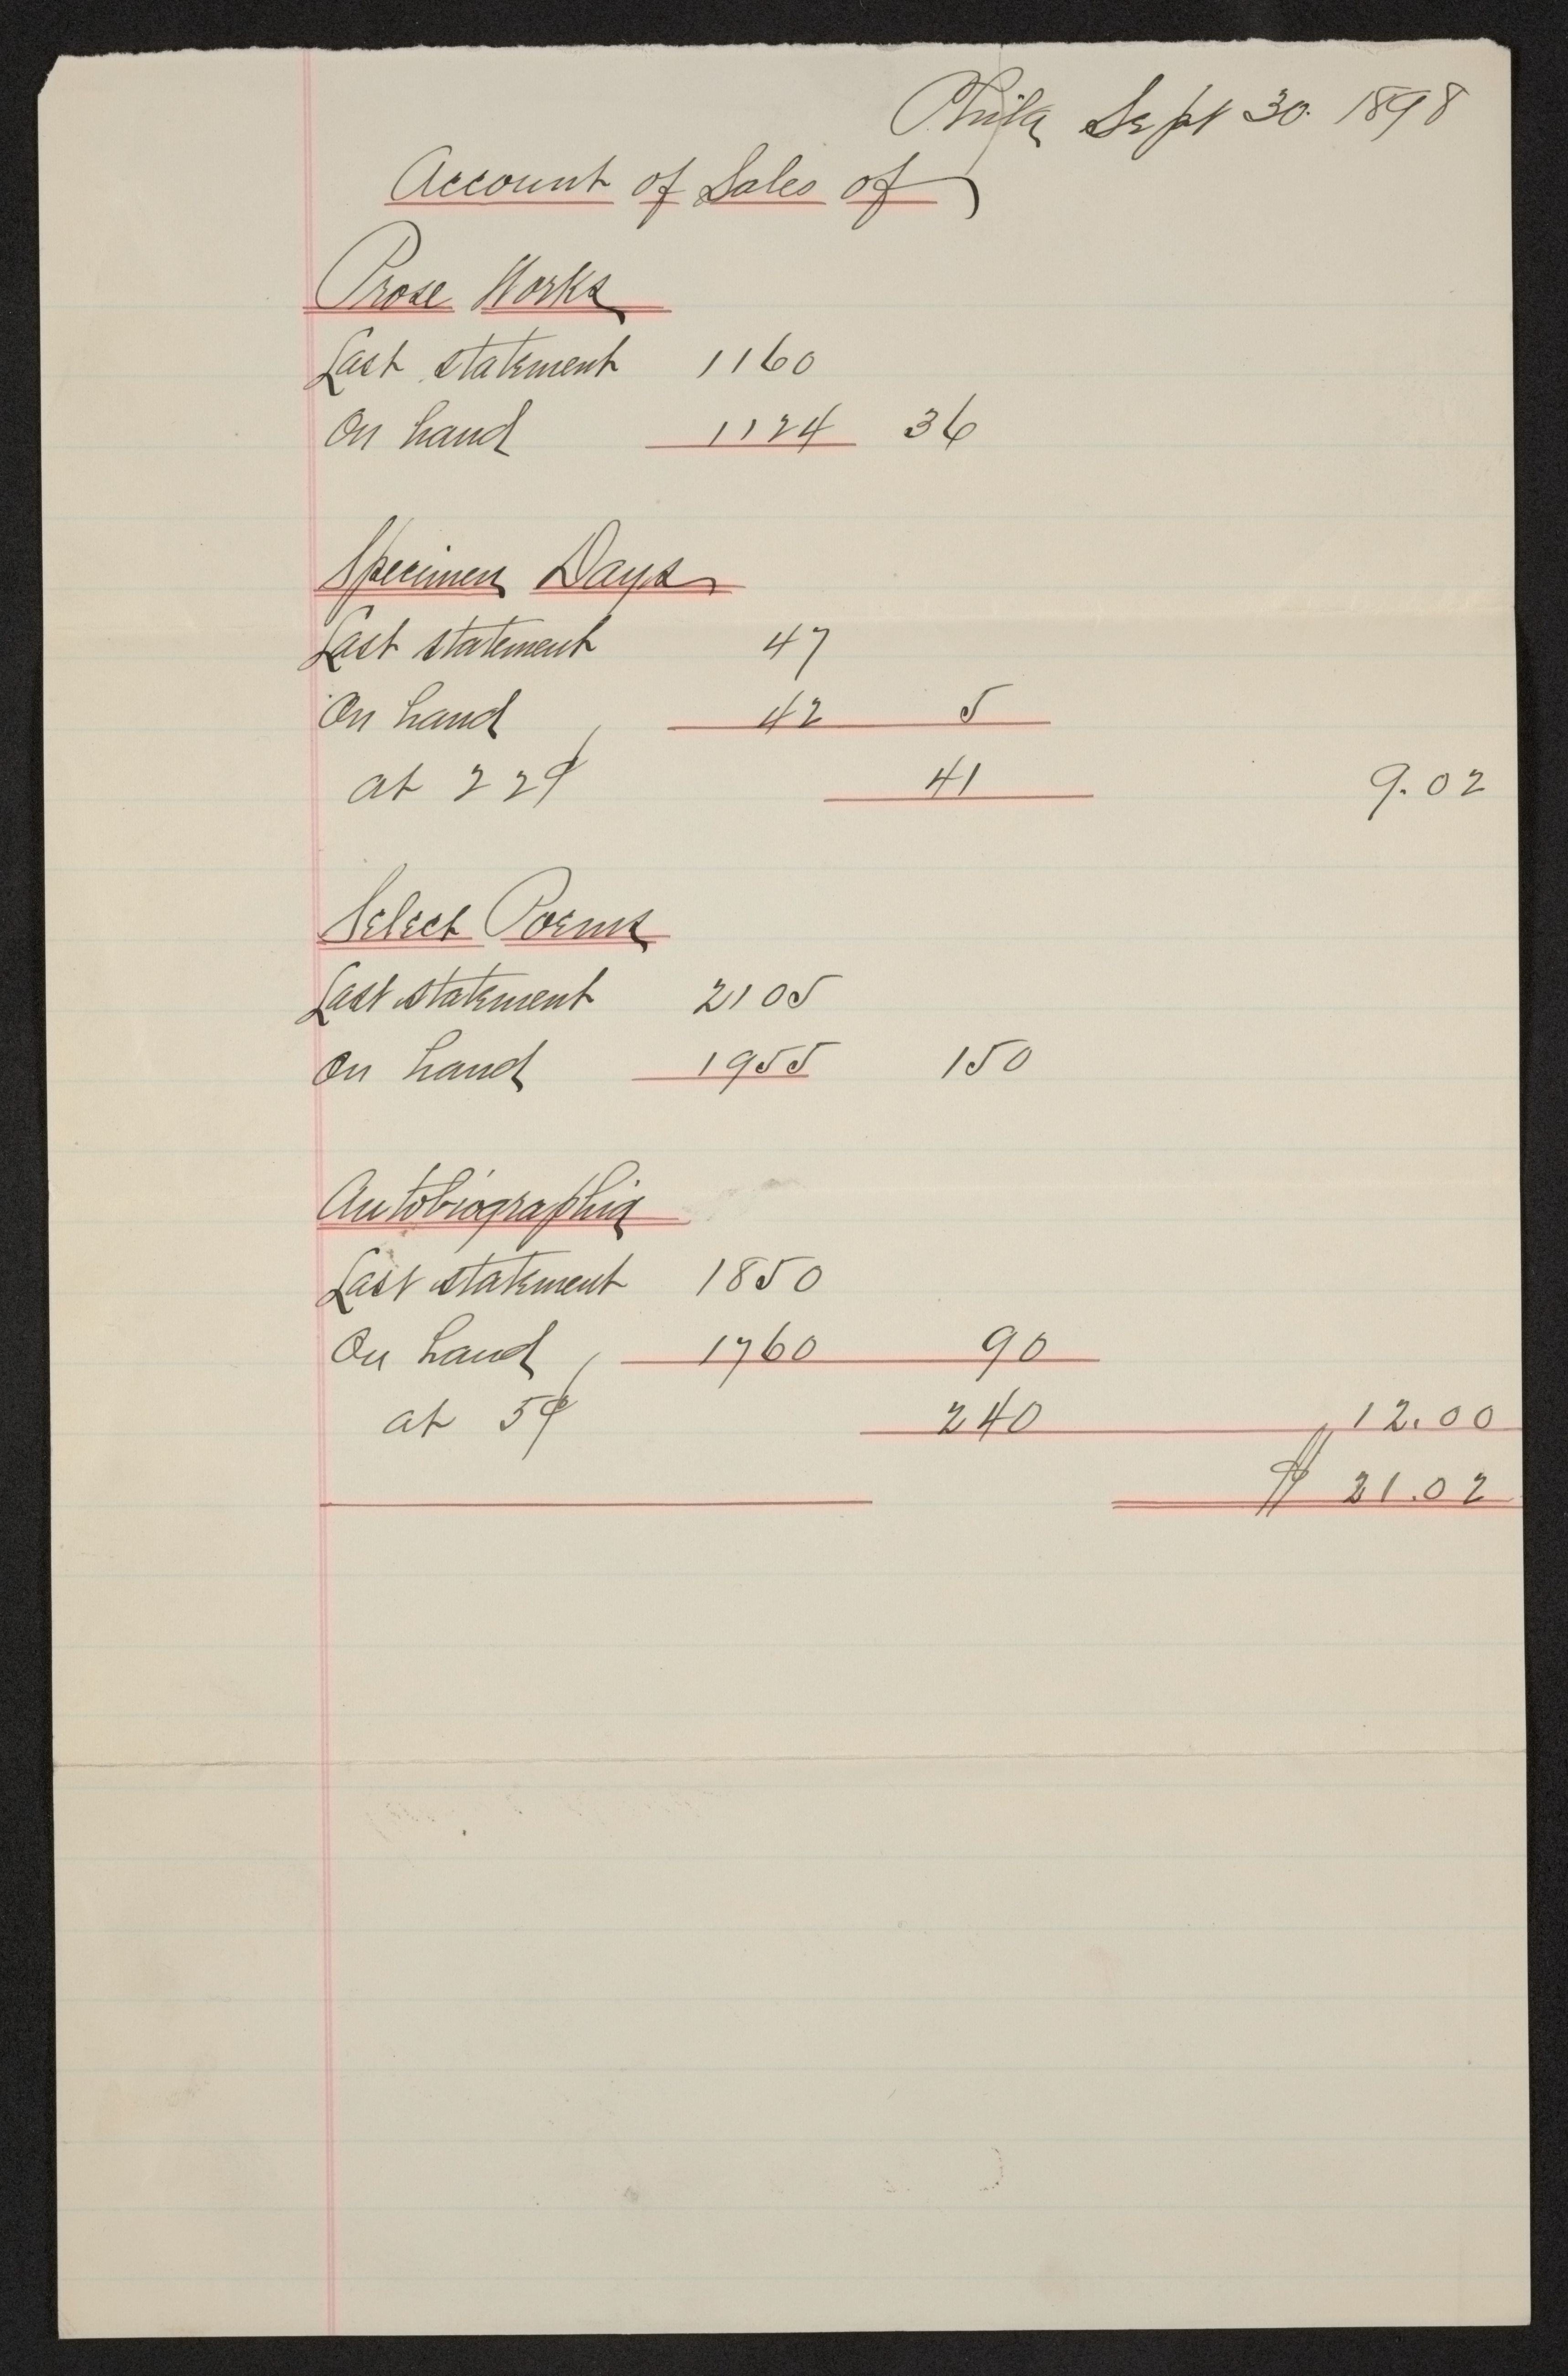 Phila Sept 30. 1898
Account of Sales of
Prose Works
Last statement 1160
On hand 1124 36
Specimen Days
Last statement 47
On hand 42 5
at 22¢ 41 9.02
Select Poems
Last statement 2105
On hand 1955 150
Autobiographia
Last statement 1850
On hand 1760 90
at 5¢ 240 12.00
$ 21.02